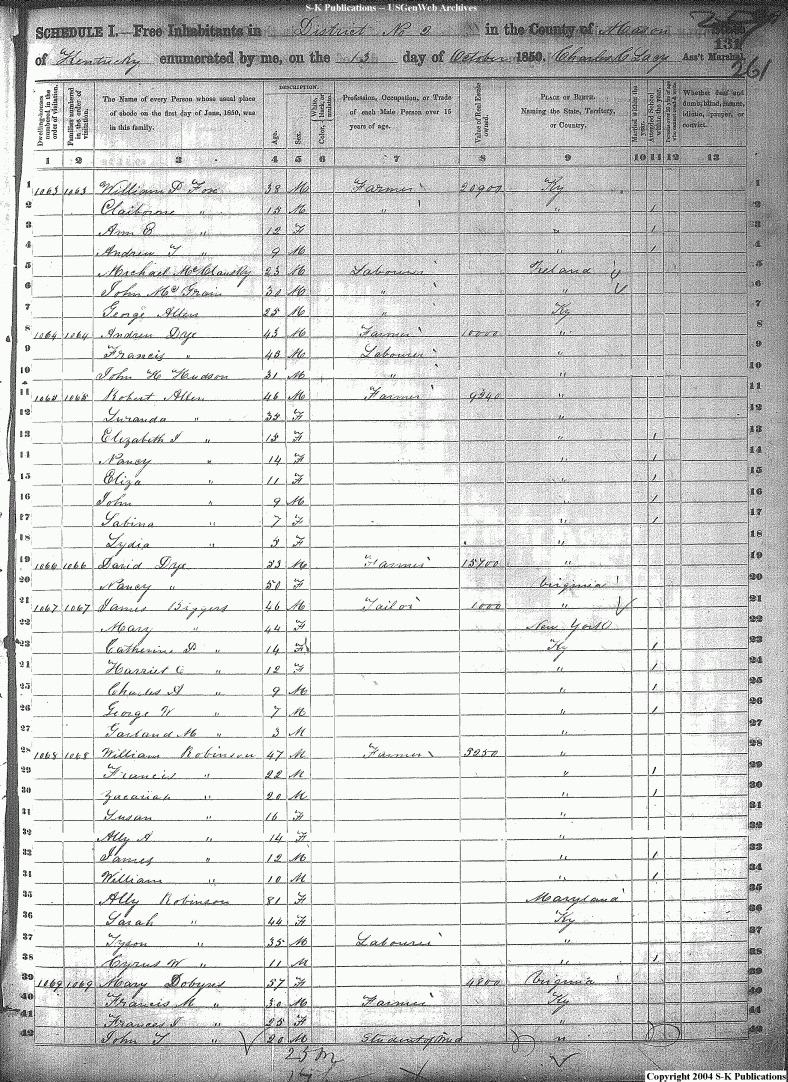 S-K Publications – USGenWeb Archives
SCHEDULE I.—Free Inhabitants in District No 2 in the County of Mason State
of Kentucky enumerated by me, on the 13 day of October 1850. Charles C Ass't Marshal.
131
261
Dwelling-houses numbered in the order of visitation.
Families numbered in the order of visitation.
The Name of every Person whose usual place of abode on the first day of June, 1850, was in this family.
DESCRIPTION.
Age.
Sex.
Color, White, black, or mulatto.
Profession, Occupation, or Trade of each Male Person over 15 years of age.
Value of Real Estate owned.
PLACE OF BIRTH. Naming the State, Territory, or Country.
Married within the year.
Attended School within the year.
Whether deaf and dumb, blind, insane, idiotic, pauper, or convict.
1 2 3 4 5 6 7 8 9 10 11 12 13
1 1063 1063 William P Fox 38 M Farmer 20900 Ky 1
2 Claiborne " 15 M " " / 2
3 Ann E " 12 F " / 3
4 Andrew T " 9 M " / 4
5 Michael McClausky 23 M Labourer Ireland 5
6 John Mc Grain 30 M " " 6
7 George Allen 25 M " Ky 7
8 1064 1064 Andrew Dye 43 M Farmer 10000 " 8
9 Francis " 45 M Labourer " 9
10 John H Hudson 31 M " " 10
11 1065 1065 Robert Allen 46 M Farmer 9340 " 11
12 Luranda " 35 F " 12
13 Elizabeth J " 15 F " / 13
14 Nancy " 14 F " / 14
15 Eliza " 11 F " / 15
16 John " 9 M " / 16
17 Sabina " 7 F " / 17
18 Lydia " 3 F " 18
19 1066 1066 David Dye 53 M Farmer 15700 " 19
20 Nancy " 50 F Virginia 20
21 1067 1067 James Biggers 46 M Tailor 1000 " 21
22 Mary " 44 F New York 22
23 Catherine P " 14 F Ky / 23
24 Harriet C " 12 F " / 24
25 Charles A " 9 M " / 25
26 George W " 7 M " / 26
27 Garland M " 3 M " 27
28 1068 1068 William Robinson 47 M Farmer 3250 " 28
29 Francis " 22 M " / 29
30 Zacariah " 20 M " / 30
31 Susan " 16 F " 31
32 Ally A " 14 F " 32
33 James " 12 M " / 33
34 William " 10 M " / 34
35 Ally Robinson 81 F Maryland 35
36 Sarah " 44 F Ky 36
37 Tyson " 35 M Labourer " 37
38 Cyrus W " 11 M " / 38
39 1069 1069 Mary Dobyns 57 F 4800 Virginia 39
40 Francis M " 30 M Farmer Ky 40
41 Frances J " 25 F " 41
42 John T " 20 M Student of Med " 42
25 m
Copyright 2004 S-K Publications